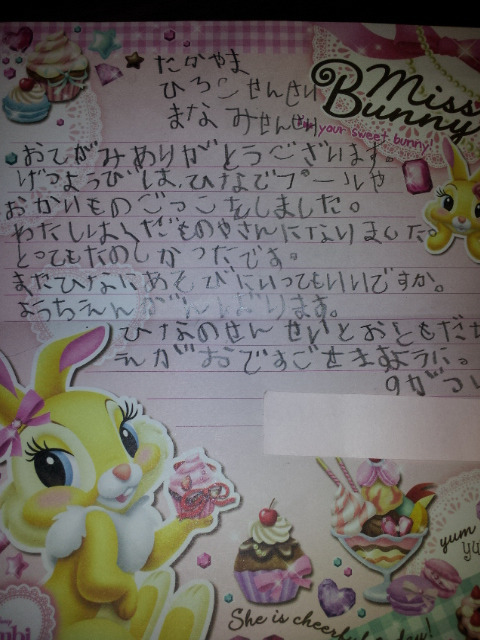 たかやま
ひろこせんせい
まなみせんせい
Miss
Bunny
your sweet bunny!
おてがみありがとうございます。
げつようびは、ひなでプールや
おかいものごっこをしました。
わたしはくだものやさんになりました。
とってもたのしかったです。
またひなにあそびにいってもいいですか。
ようちえんがんばります。
ひなのせんせいとおともだち
えがおですごせますように。
9がつ
yum
She is cheerful